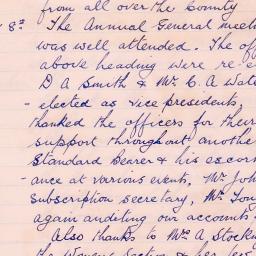 from all over the County
8th The Annual General meeti
was well attended. The off
above heading were re-e
D A Smith & Mr. C. A Wate
- elected as vice presidents,
thanked the officers for their
support throughout anothe
Standard Bearer & his escort
- ance at various events, Mr Joh
Subscription secretary, Mr Ton
again auditing our accounts
Also thanks to Mrs A Stock
the Womens Section & her